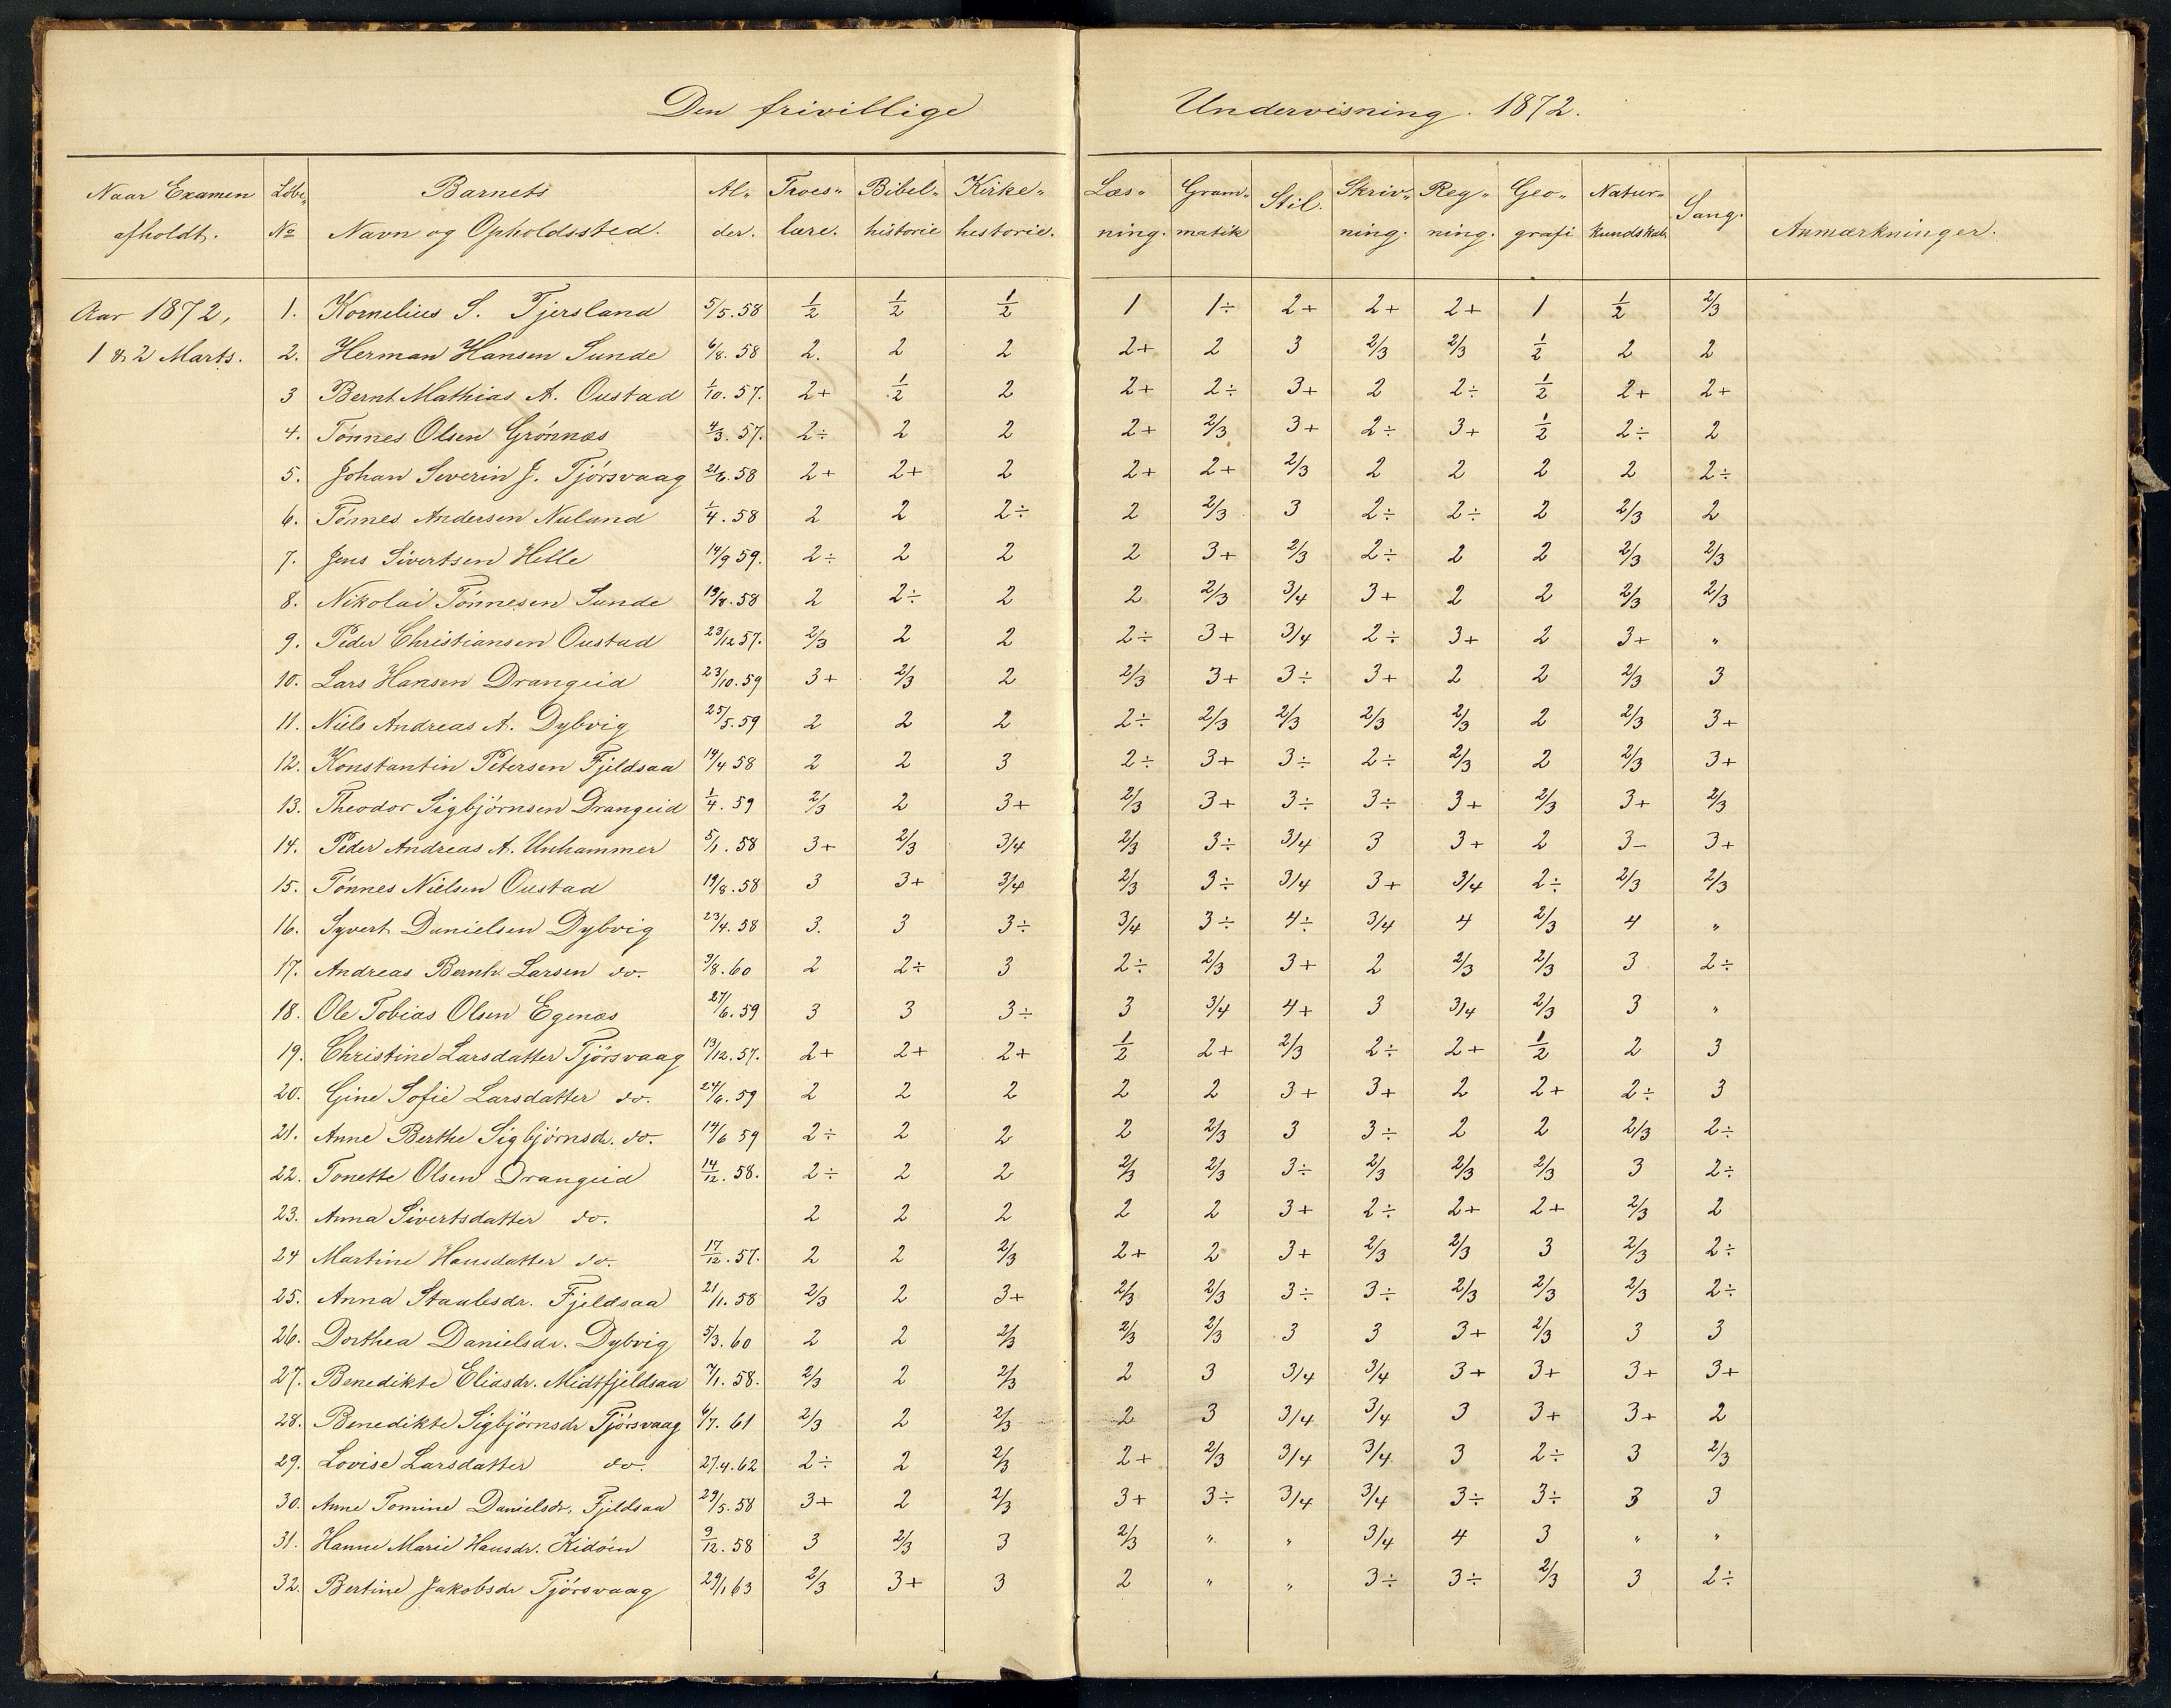 Den frivillige Undervisning. 1872.
Naar Examen afholdt. Løbe No Barnets Navn og Opholdssted. Al- der. Troes- lære. Bibel- historie Kirke- hestorie. Læs- ning. Gram- matik Stil. Skriv- ning. Reg- ning. Geo- grafi Natur- kundskab. Sang. Anmærkninger.
Aar 1872, 1. Kornelius S. Tjersland 5/5.58 1/2 1/2 1/2 1 1÷ 2+ 2+ 2+ 1 1/2 2/3
1 & 2 Marts. 2. Herman Hansen Sunde 6/8.58 2. 2 2 2+ 2 3 2/3 2/3 1/2 2 2
3 Bernt Mathias A. Oustad 1/10.57. 2+ 1/2 2 2+ 2÷ 3+ 2 2÷ 1/2 2+ 2+
4. Tönnes Olsen Grönnæs 4/3.57. 2÷ 2 2 2+ 2/3 3+ 2÷ 3+ 1/2 2÷ 2
5. Johan Severin J. Tjörsvaag 21/6.58 2+ 2+ 2 2+ 2+ 2/3 2 2 2 2 2÷
6. Tönnes Andersen Nuland 1/4.58 2 2 2÷ 2 2/3 3 2÷ 2÷ 2 2/3 2
7. Jens Sivertsen Helle 14/9 59. 2÷ 2 2 2 3+ 2/3 2÷ 2 2 2/3 2/3
8. Nikolai Tönnesen Sunde 19/8.58 2 2÷ 2 2 2/3 3/4 3+ 2 2 2/3 2/3
9. Peder Christiansen Oustad 23/12 57. 2/3 2 2 2÷ 3+ 3/4 2÷ 3+ 2 3+ "
10. Lars Hansen Drangeid 23/10.59 3+ 2/3 2 2/3 3+ 3÷ 3+ 2 2 2/3 3
11. Niels Andreas A. Dybvig 25/5.59 2 2 2 2÷ 2/3 2/3 2/3 2/3 2 2/3 3+
12. Konstantin Petersen Fjeldsaa 14/4 58 2 2 3 2÷ 3+ 3÷ 2÷ 2/3 2 2/3 3+
13. Theodor Sigbjörnsen Drangeid 1/4.59 2/3 2 3+ 2/3 3+ 3÷ 3÷ 3+ 2/3 3+ 2/3
14. Peder Andreas A. Unhammer 5/1.58 3+ 2/3 3/4 2/3 3÷ 3/4 3 3+ 2 3- 3+
15. Tönnes Nielsen Oustad 19/8.58 3 3+ 3/4 2/3 3÷ 3/4 3+ 3/4 2÷ 2/3 2/3
16. Syvert Danielsen Dybvig 23/4.58 3. 3 3÷ 3/4 3÷ 4÷ 3/4 4 2/3 4 "
17. Andreas Bernh. Larsen do. 3/8.60 2 2÷ 3 2÷ 2/3 3+ 2 2/3 2/3 3 2÷
18. Ole Tobias Olsen Egenæs 27/6.59 3 3 3÷ 3 3/4 4+ 3 3/4 2/3 3 "
19. Christine Larsdatter Tjörsvaag 13/12.57. 2+ 2+ 2+ 1/2 2+ 2/3 2÷ 2+ 1/2 2 3
20. Gine Sofie Larsdatter do. 24/6.59 2 2 2 2 2 3+ 3+ 2 2+ 2÷ 3
21. Anne Berthe Sigbjörnsdr. do. 14/6 59 2÷ 2 2 2 2/3 3 3÷ 2 2 2/3 2÷
22. Tonette Olsen Drangeid 14/12.58. 2÷ 2 2 2/3 2/3 3÷ 2/3 2/3 2/3 3 2÷
23. Anna Sivertsdatter do. 2 2 2 2 2 3+ 2÷ 2+ 2+ 2/3 2
24 Martine Hansdatter do. 17/12.57. 2 2 2/3 2+ 2 3+ 2/3 2/3 3 2/3 2÷
25. Anna Staalesdr. Fjeldsaa 21/1.58 2/3 2 3+ 2/3 2/3 3÷ 3÷ 2/3 2/3 2/3 2÷
26. Dorthea Danielsdr. Dybvig 5/3.60 2 2 2/3 2/3 2/3 3 3 3+ 2/3 3 3
27. Benedikte Eliasdr. Midtfjeldsaa 7/1.58. 2/3 2 2/3 2 3 3/4 3/4 3+ 3+ 3+ 3+
28. Benedikte Sigbjörnsdr Tjörsvaag 6/7.61 2/3 2 2/3 2 3 3/4 3/4 3 3+ 3+ 2
29. Lovise Larsdatter do. 27.4.62 2÷ 2 2/3 2+ 2/3 3/4 3/4 3 2÷ 3 2/3
30. Anne Tomine Danielsdr. Fjeldsaa 29/5.58 3+ 2 2/3 3+ 3÷ 3/4 3/4 3÷ 3÷ 3 3
31. Hanne Marie Hansdr. Kidöin 9/12.58 3 2/3 3 2/3 " " 3/4 4 3 " "
32. Bertine Jakobsdr Tjörsvaag 29/1 63 2/3 3+ 3 2 " " 3÷ 3÷ 2/3 3 2÷